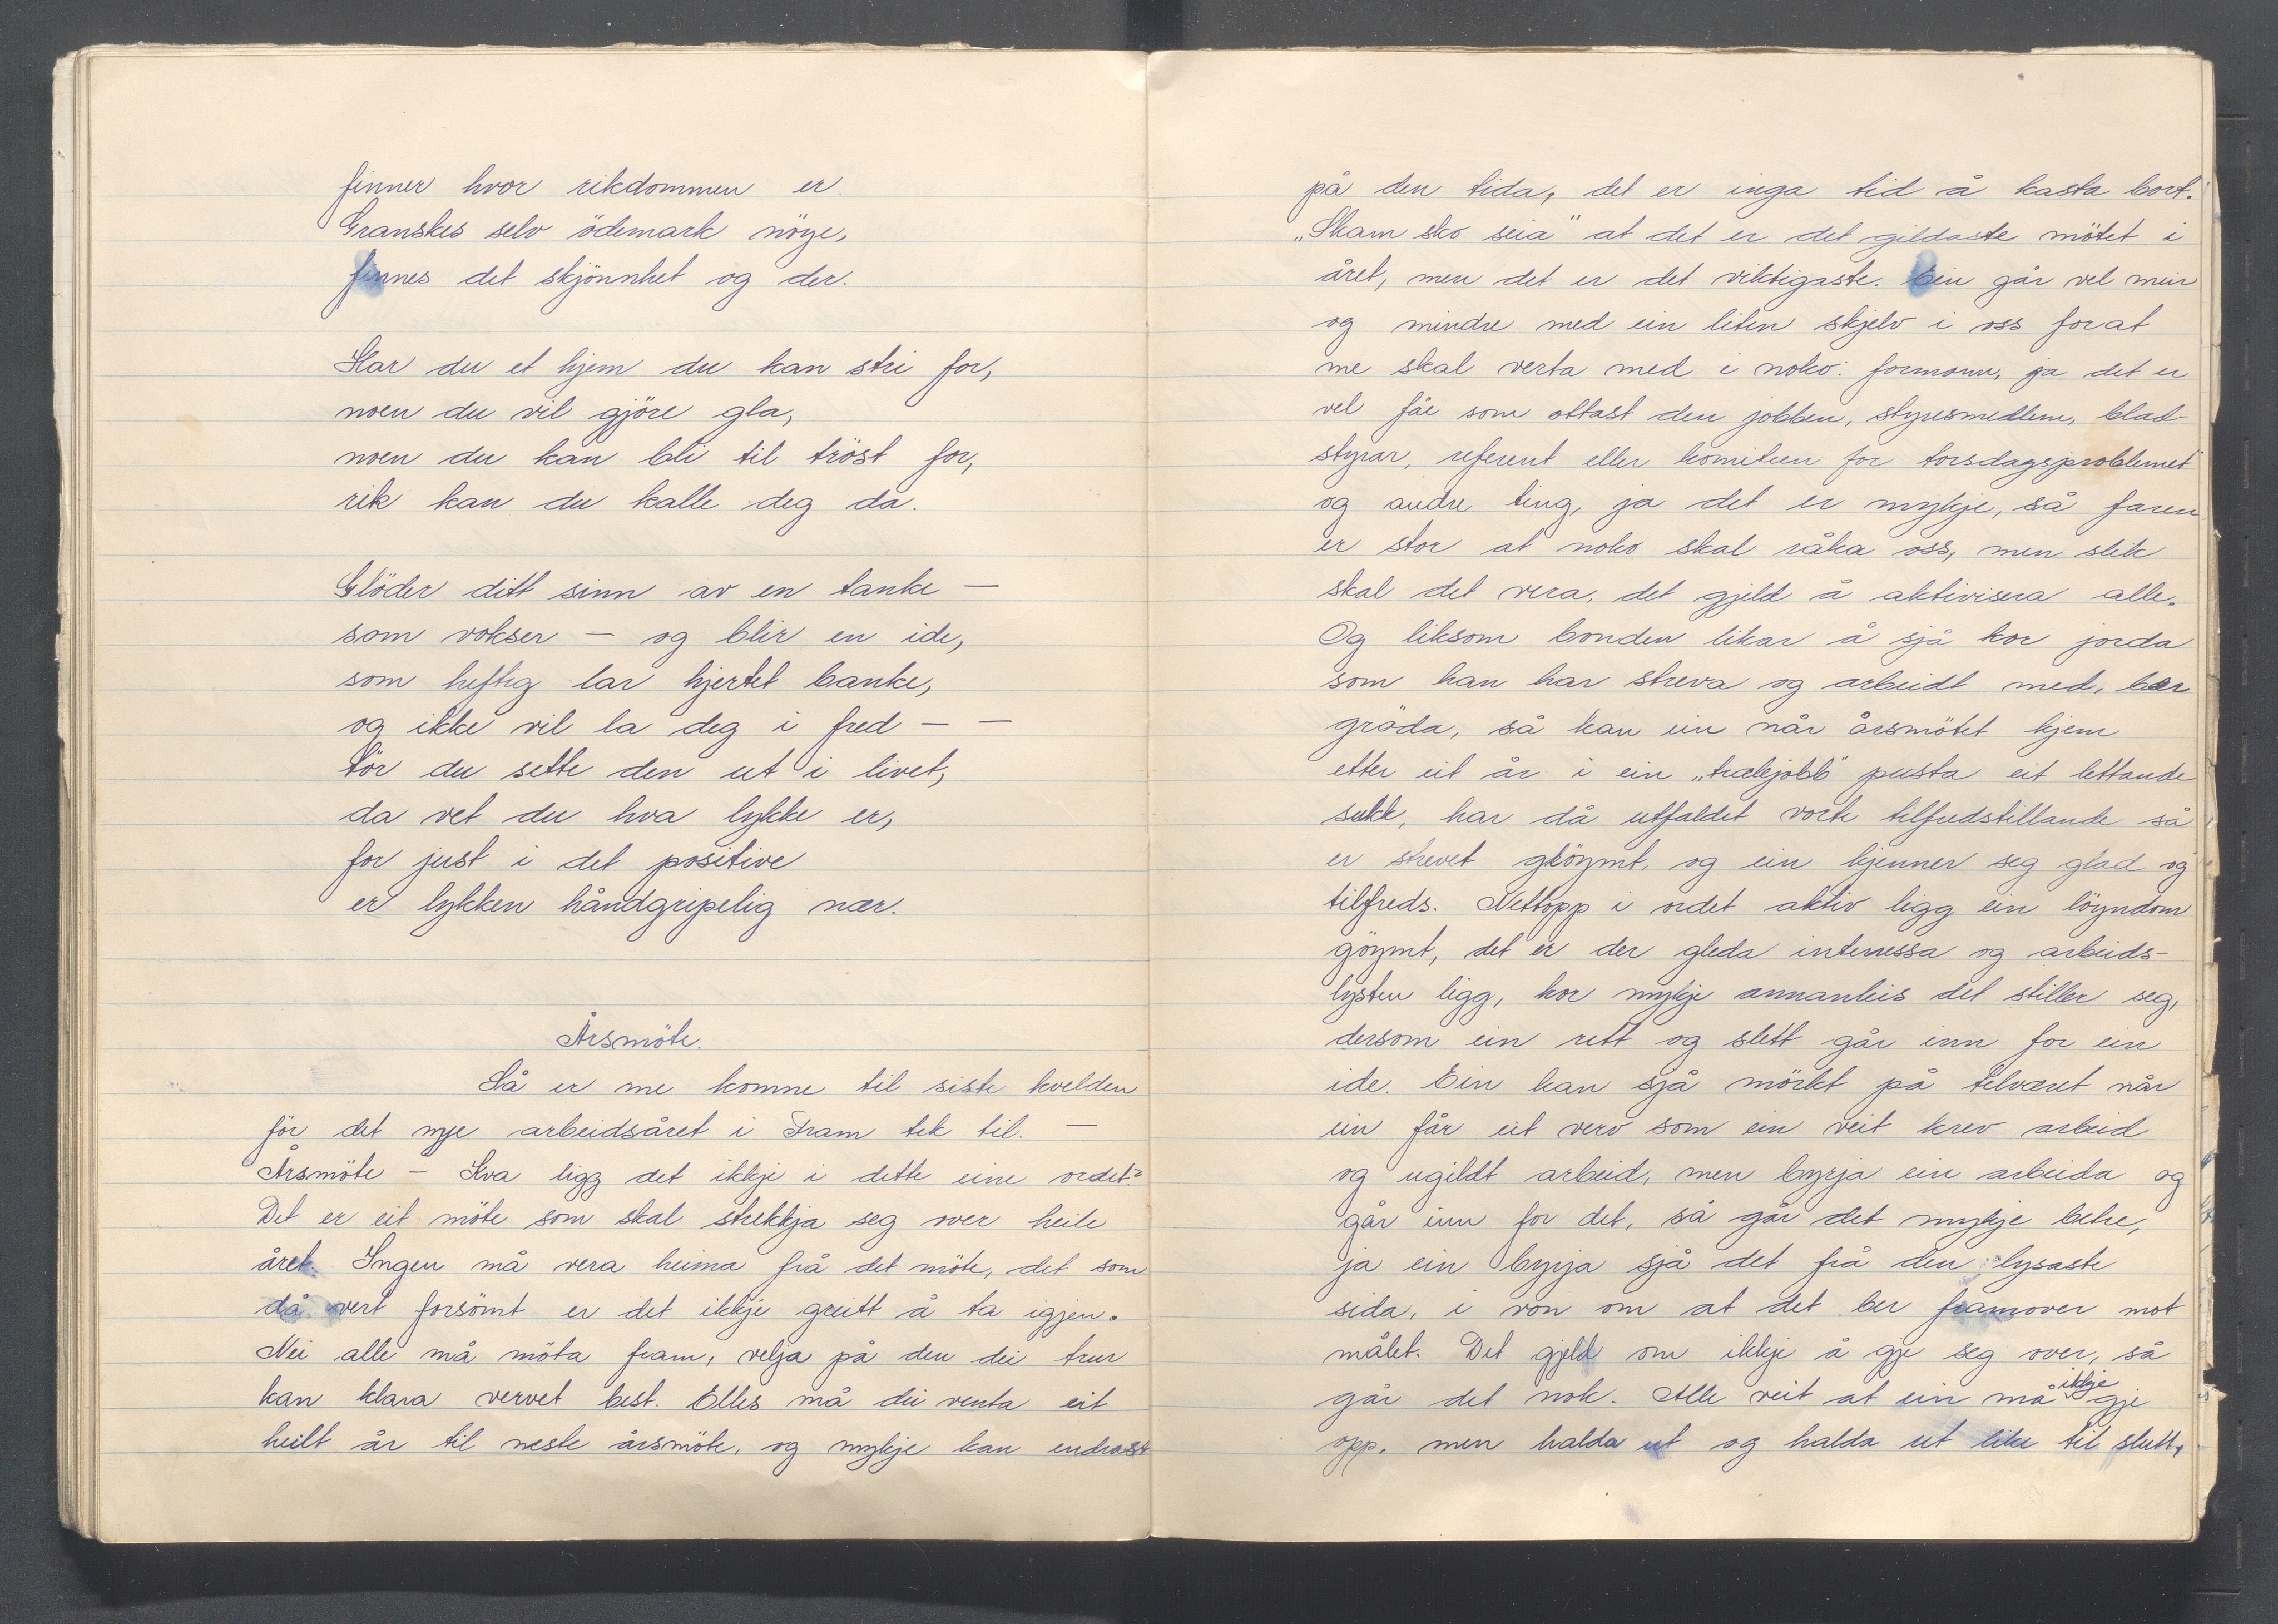 finner hvor rikdommen er.
Granskes selv ödemark nöye,
finnes det skjönnhet og der.
Har du et hjem du kan stri for,
noen du vil gjöre gla,
noen du kan bli til tröst for,
rik kan du kalle deg da.
Glöder ditt sinn av en tanke —
som vokser — og blir en ide,
som heftig lar hjertet banke,
og ikke vil la deg i fred — —
tör du sette den ut i livet,
da vet du hva lykke er,
for just i det positive
er lykken håndgripelig nær.
Årsmöte.
Så er me komne til siste kvelden
för det nye arbeidsåret i Fram tek til. —
Årsmöte — Kva ligg det ikkje i dette eine ordet?
Det er eit möte som skal strekkja seg over heile
året. Ingen må vera heima frå det möte, det som
då vert forsömt er det ikkje greitt å ta igjen.
Nei alle må möta fram, velja på den dei trur
kan klara vervet best. Elles må dei venta eit
heilt år til neste årsmöte, og mykje kan endrast
på den tida, det er inga tid å kasta bort.
„Skam sko seia" at det er det gildaste mötet i
året, men det er det viktigaste. Ein går vel meir
og mindre med ein liten skjelv i oss forat
me skal verta med i noko: formann, ja det er
vel fåe som ottast den jobben, styresmedlem, blad-
styrar, referent eller komiteen for torsdagsproblemet
og andre ting, ja det er mykje, så faren
er stor at noko skal råka oss, men slik
skal det vera, det gjeld å aktivisera alle.
Og liksom bonden likar å sjå kor jorda
som han har streva og arbeidt med, bær
gröda, så kan ein når årsmötet kjem
etter eit år i ein „trælejobb" pusta eit lettande
sukk, har då utfaldet vorte tilfredstillande så
er strevet glöymt, og ein kjenner seg glad og
tilfreds. Nettopp i ordet aktiv ligg ein löyndom
göymt, det er der gleda interessa og arbeids-
lysten ligg, kor mykje annanleis det stiller seg,
dersom ein rett og slett går inn for ein
ide. Ein kan sjå mörkt på tilværet når
ein får eit verv som ein veit krev arbeid
og ugildt arbeid, men byrja ein arbeida og
går inn for det, så går det mykje betre,
ja ein byrja sjå det frå den lysaste
sida, i von om at det ber framover mot
målet. Det gjeld om ikkje å gje seg over, så
går det nok. Alle veit at ein må ikkje gje
opp, men halda ut og halda ut like til slutt,